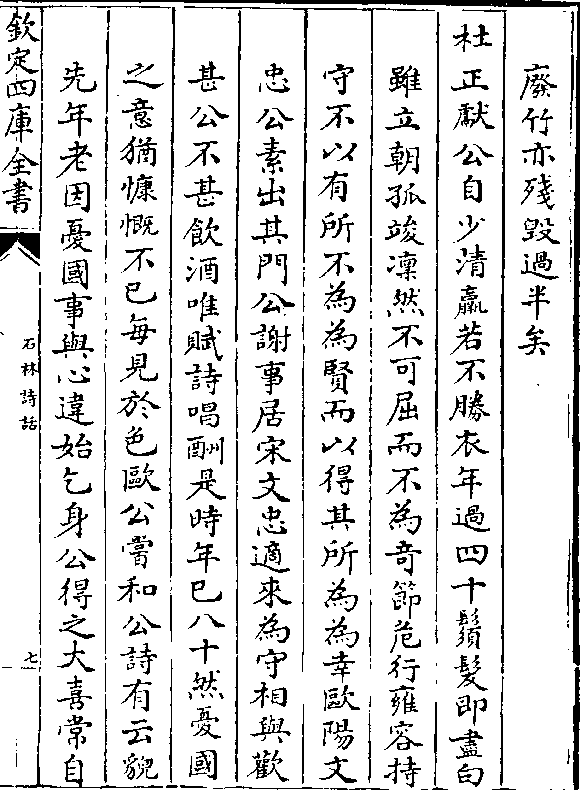 廢竹亦殘毀過半矣
杜正獻公自少清羸若不勝衣年過四十鬚髮即盡白
雖立朝孤竣凜然不可屈而不為竒節危行雍容持
守不以有所不為為賢而以得其所為為幸歐陽文
忠公素出其門公謝事居宋文忠適來為守相與歡
甚公不甚飲酒唯賦詩唱酬是時年已八十然憂國
之意猶慷慨不已每見於色歐公嘗和公詩有云貌
先年老因憂國事與心違始乞身公得之大喜常自
欽定四庫全書
石林詩話
七